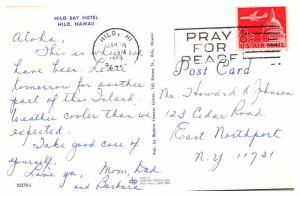 HILO BAY HOTEL
HILO, HAWAII
Aloha,
This is where we
have been. Leave
tomorrow for another
part of this Island.
Weather cooler than we
expected.
Take good care of
yourself.
Love ya, Mom, Dad
and Barbara
HILO, HI
PM
1969
PRAY
FOR
PEACE
8c
U.S. AIR MAIL
Post Card
Mr. Howard O. Johnson
123 Cedar Road
East Northport
N.Y. 11731
dp